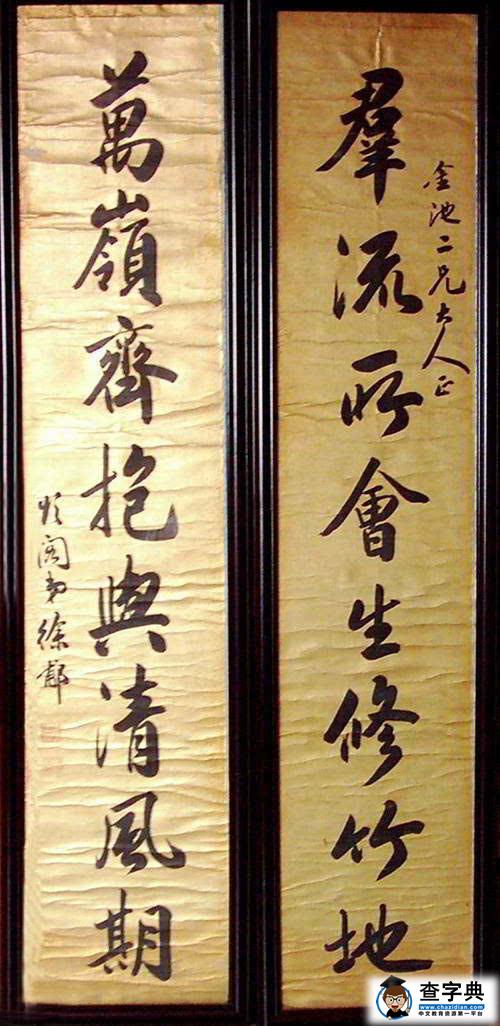 金池二兄大人正
羣流所會生修竹地
萬嶺齊抱與清風期
頌閣弟徐郙
查字典
www.chazidian.com
中文教育资源第一平台